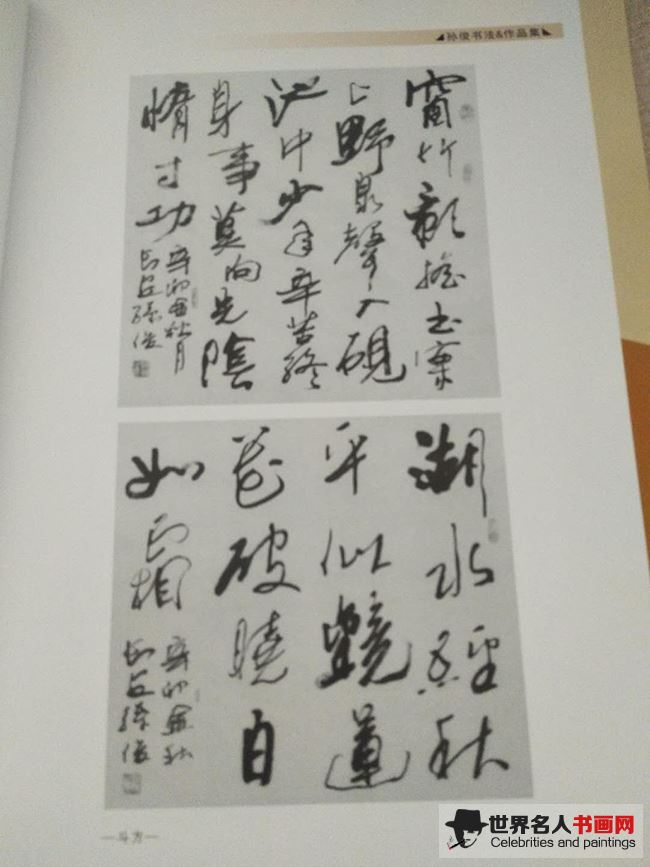 孙俊书法&作品集
窗竹影搖书案
上野泉聲入硯
池中少年辛苦終
身事莫向光陰
惰寸功
辛卯金秋月
长安孫俊
湖水經秋
平似鏡蓮
花破曉白
如霜
辛卯金秋
长安孫俊
斗方
世界名人书画网
Celebrities and paintings